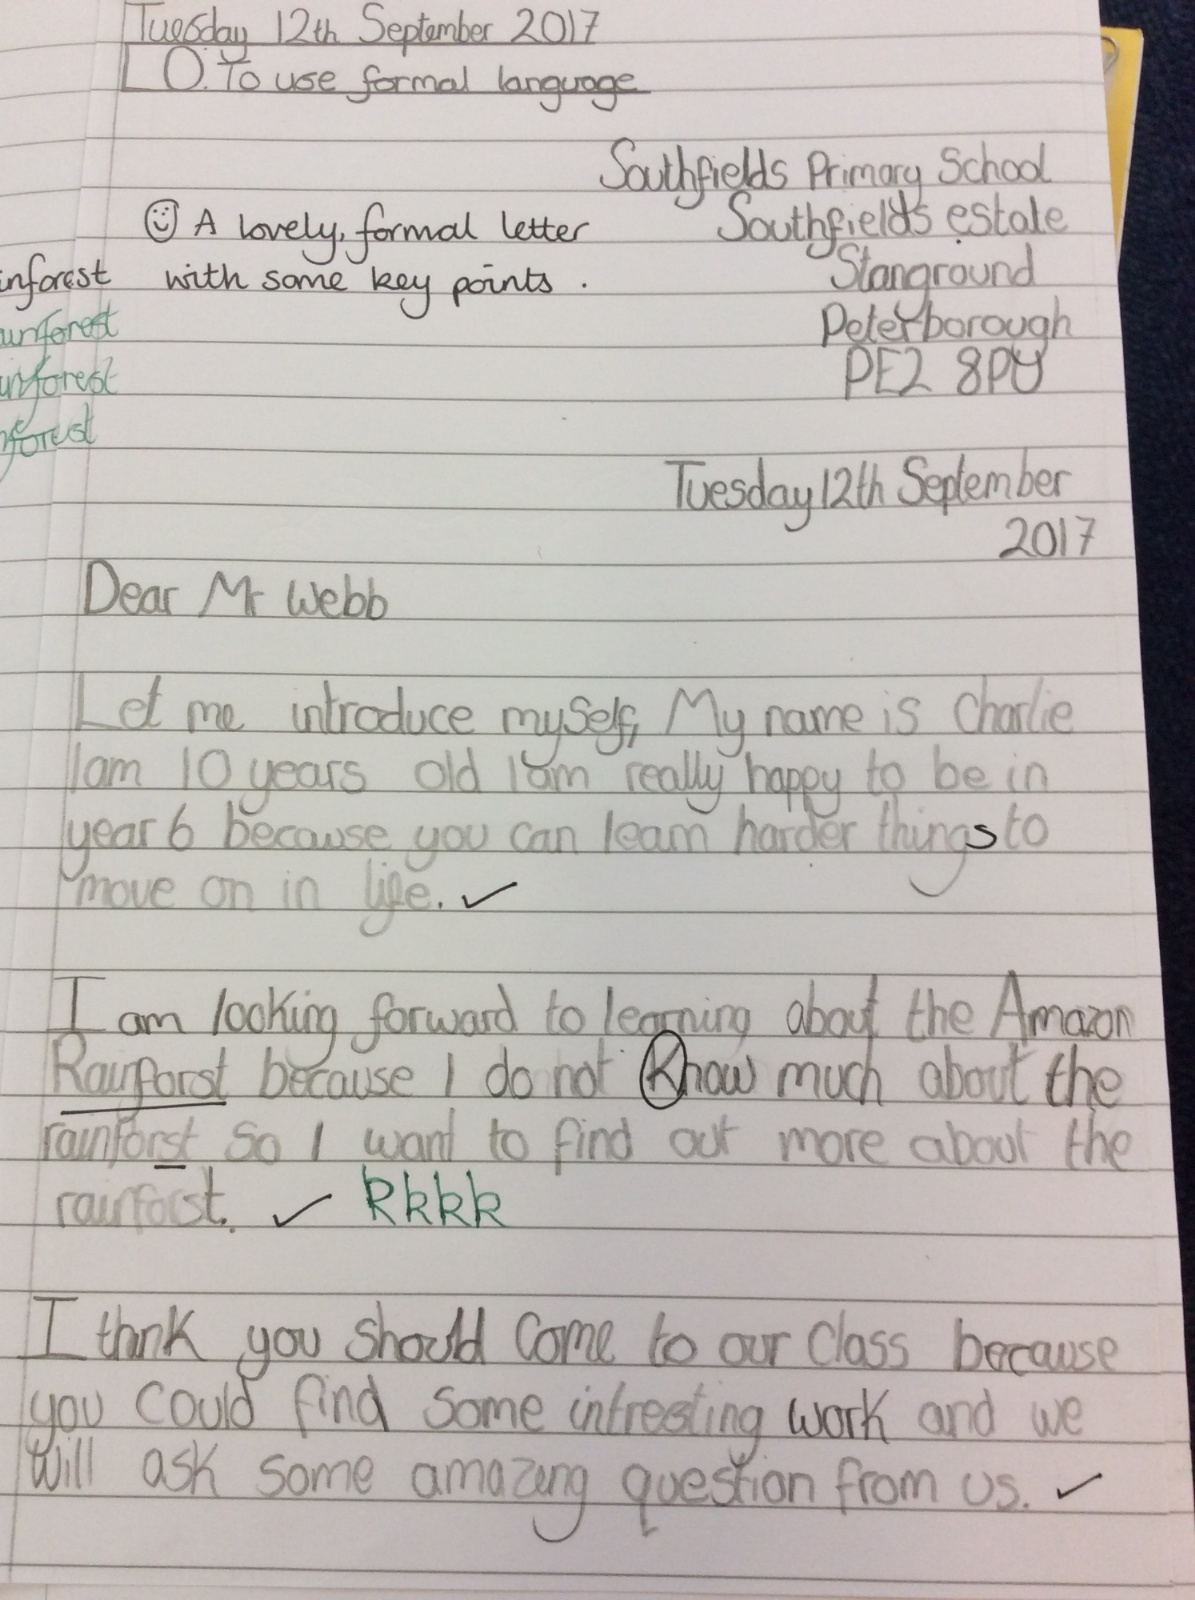 Tuesday 12th September 2017
LO. To use formal language
Southfields Primary School
☺ A lovely, formal letter
Southfields estate
inforest with some key points.
Stanground
Peterborough
PE2 8PY
Tuesday 12th September
2017
Dear Mr Webb
Let me introduce myself, My name is Charlie
I am 10 years old I am really happy to be in
year 6 because you can learn harder things to
move on in life. ✓
I am looking forward to learning about the Amazon
Rainforst because I do not Know much about the
rainforst so I want to find out more about the
rainforst. ✓ kkkk
I think you should come to our class because
you could find some intresting work and we
will ask some amazing question from us. ✓